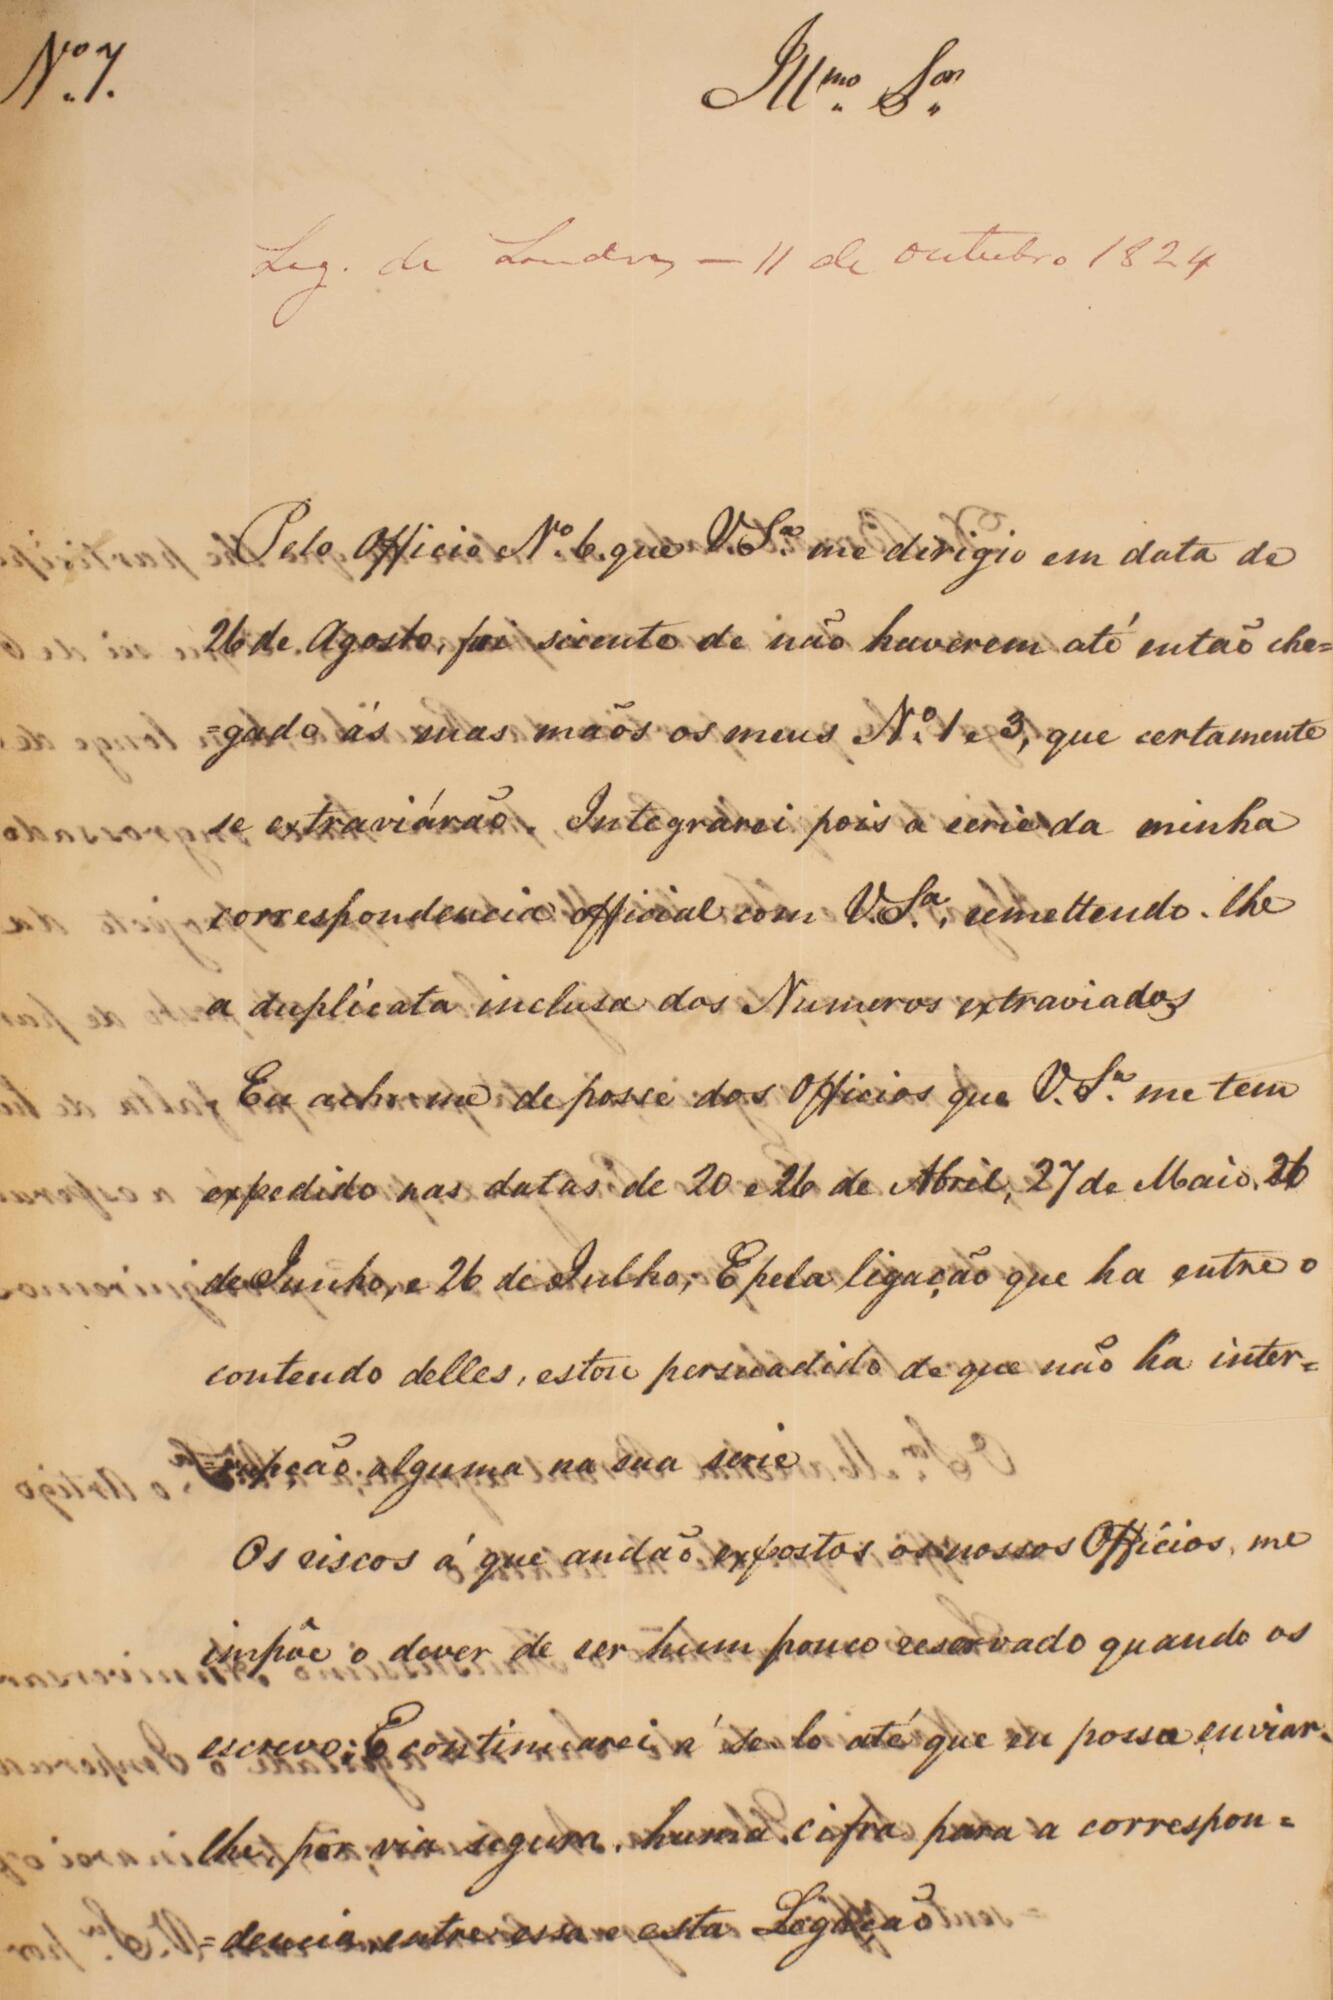 Nº 7.
Illmo Snr
Leg. de Londres — 11 de Outubro 1824
Pelo Officio Nº 6. que V. Sª me dirigio em data de
26 de Agosto, foi sciente de não haverem até então che=
=gado ás suas mãos os meus Nº 1 e 3, que certamente
se extraviárão. Integrarei pois a serie da minha
correspondencia official com V. Sª, remettendo-lhe
a duplicata inclusa dos Numeros extraviados
Eu acho-me de posse dos Officios que V. Sª me tem
expedido nas datas de 20 e 26 de Abril, 27 de Maio, 26
de Junho, e 26 de Julho; E pela ligação que ha entre o
contendo delles, estou persuadido de que não ha inter=
=rupção alguma na sua serie
Os riscos á que andão expostos os nossos Officios, me
impõe o dever de ser hum pouco reservado quando os
escrevo; E continuarei a sê-lo até que eu possa enviar-
lhe, por via segura, huma cifra para a correspon=
=dencia entre essa e esta Legação